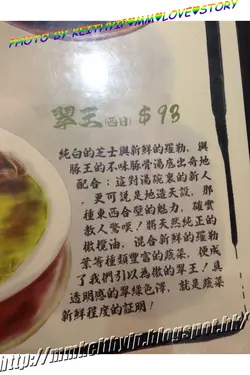 PHOTO BY KEITHYIN♥MM♥LOVE♥STORY
翠王(西日) $93
純白的芝士與新鮮的羅勒，與
豚王的不味豚骨湯底出奇地
配合；這對湯碗裏的新人
，更可說是地造天設，那
種東西合璧的魅力，確實
教人驚嘆！將天然純正的
橄欖油，混合新鮮的羅勒
葉等種類豐富的蔬菜，便成
了我們引以為傲的翠王！具
透明感的翠綠色澤，就是蔬菜
新鮮程度的証明！
http://mmkeithyin.blogspot.hk/